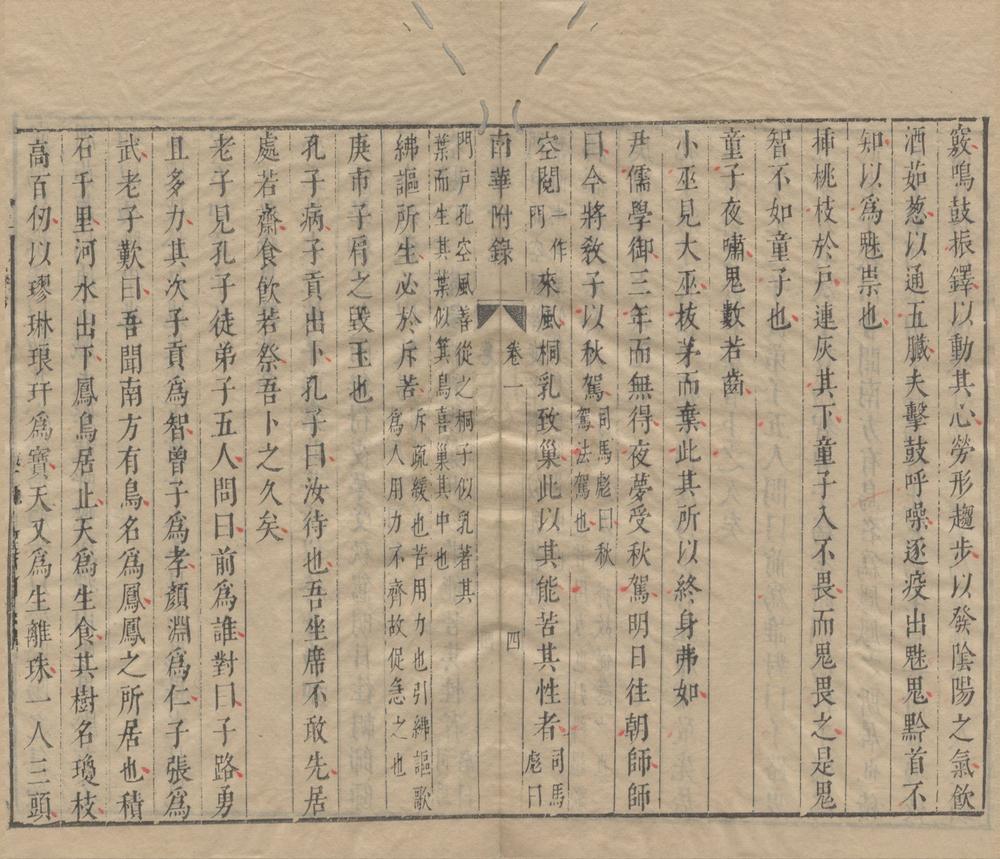 竅鳴鼓振鐸以動其心勞形趨步以發陰陽之氣飮
酒茹葱以通五臟夫擊鼓呼噪逐疫出魅鬼黔首不
知以爲魅祟也
揷桃枝於戶連灰其下童子入不畏而鬼畏之是鬼
智不如童子也
童子夜嘯鬼數若齒
小巫見大巫抜茅而棄此其所以終身弗如
尹儒學御三年而無得夜夢受秋駕明日往朝師師
曰今將敎子以秋駕司馬彪曰秋駕法駕也
空閱一作門來風桐乳致巢此以其能苦其性者司馬彪曰
南華附錄 卷一 四
門戶孔空風善從之桐子似乳著其
葉而生其葉似箕鳥喜巢其中也
紼謳所生必於斥苦斥疏緩也苦用力也引紼謳歌爲人用力不齊故促急之也
庚市子肩之毀玉也
孔子病子貢出卜孔子曰汝待也吾坐席不敢先居
處若齋食飮若祭吾卜之久矣
老子見孔子徒弟子五人問曰前爲誰對曰子路勇
且多力其次子貢爲智曾子爲孝顏淵爲仁子張爲
武老子歎曰吾聞南方有鳥名爲鳳鳳之所居也積
石千里河水出下鳳鳥居止天爲生食其樹名瓊枝
高百仞以璆琳琅玕爲寶天又爲生離珠一人三頭